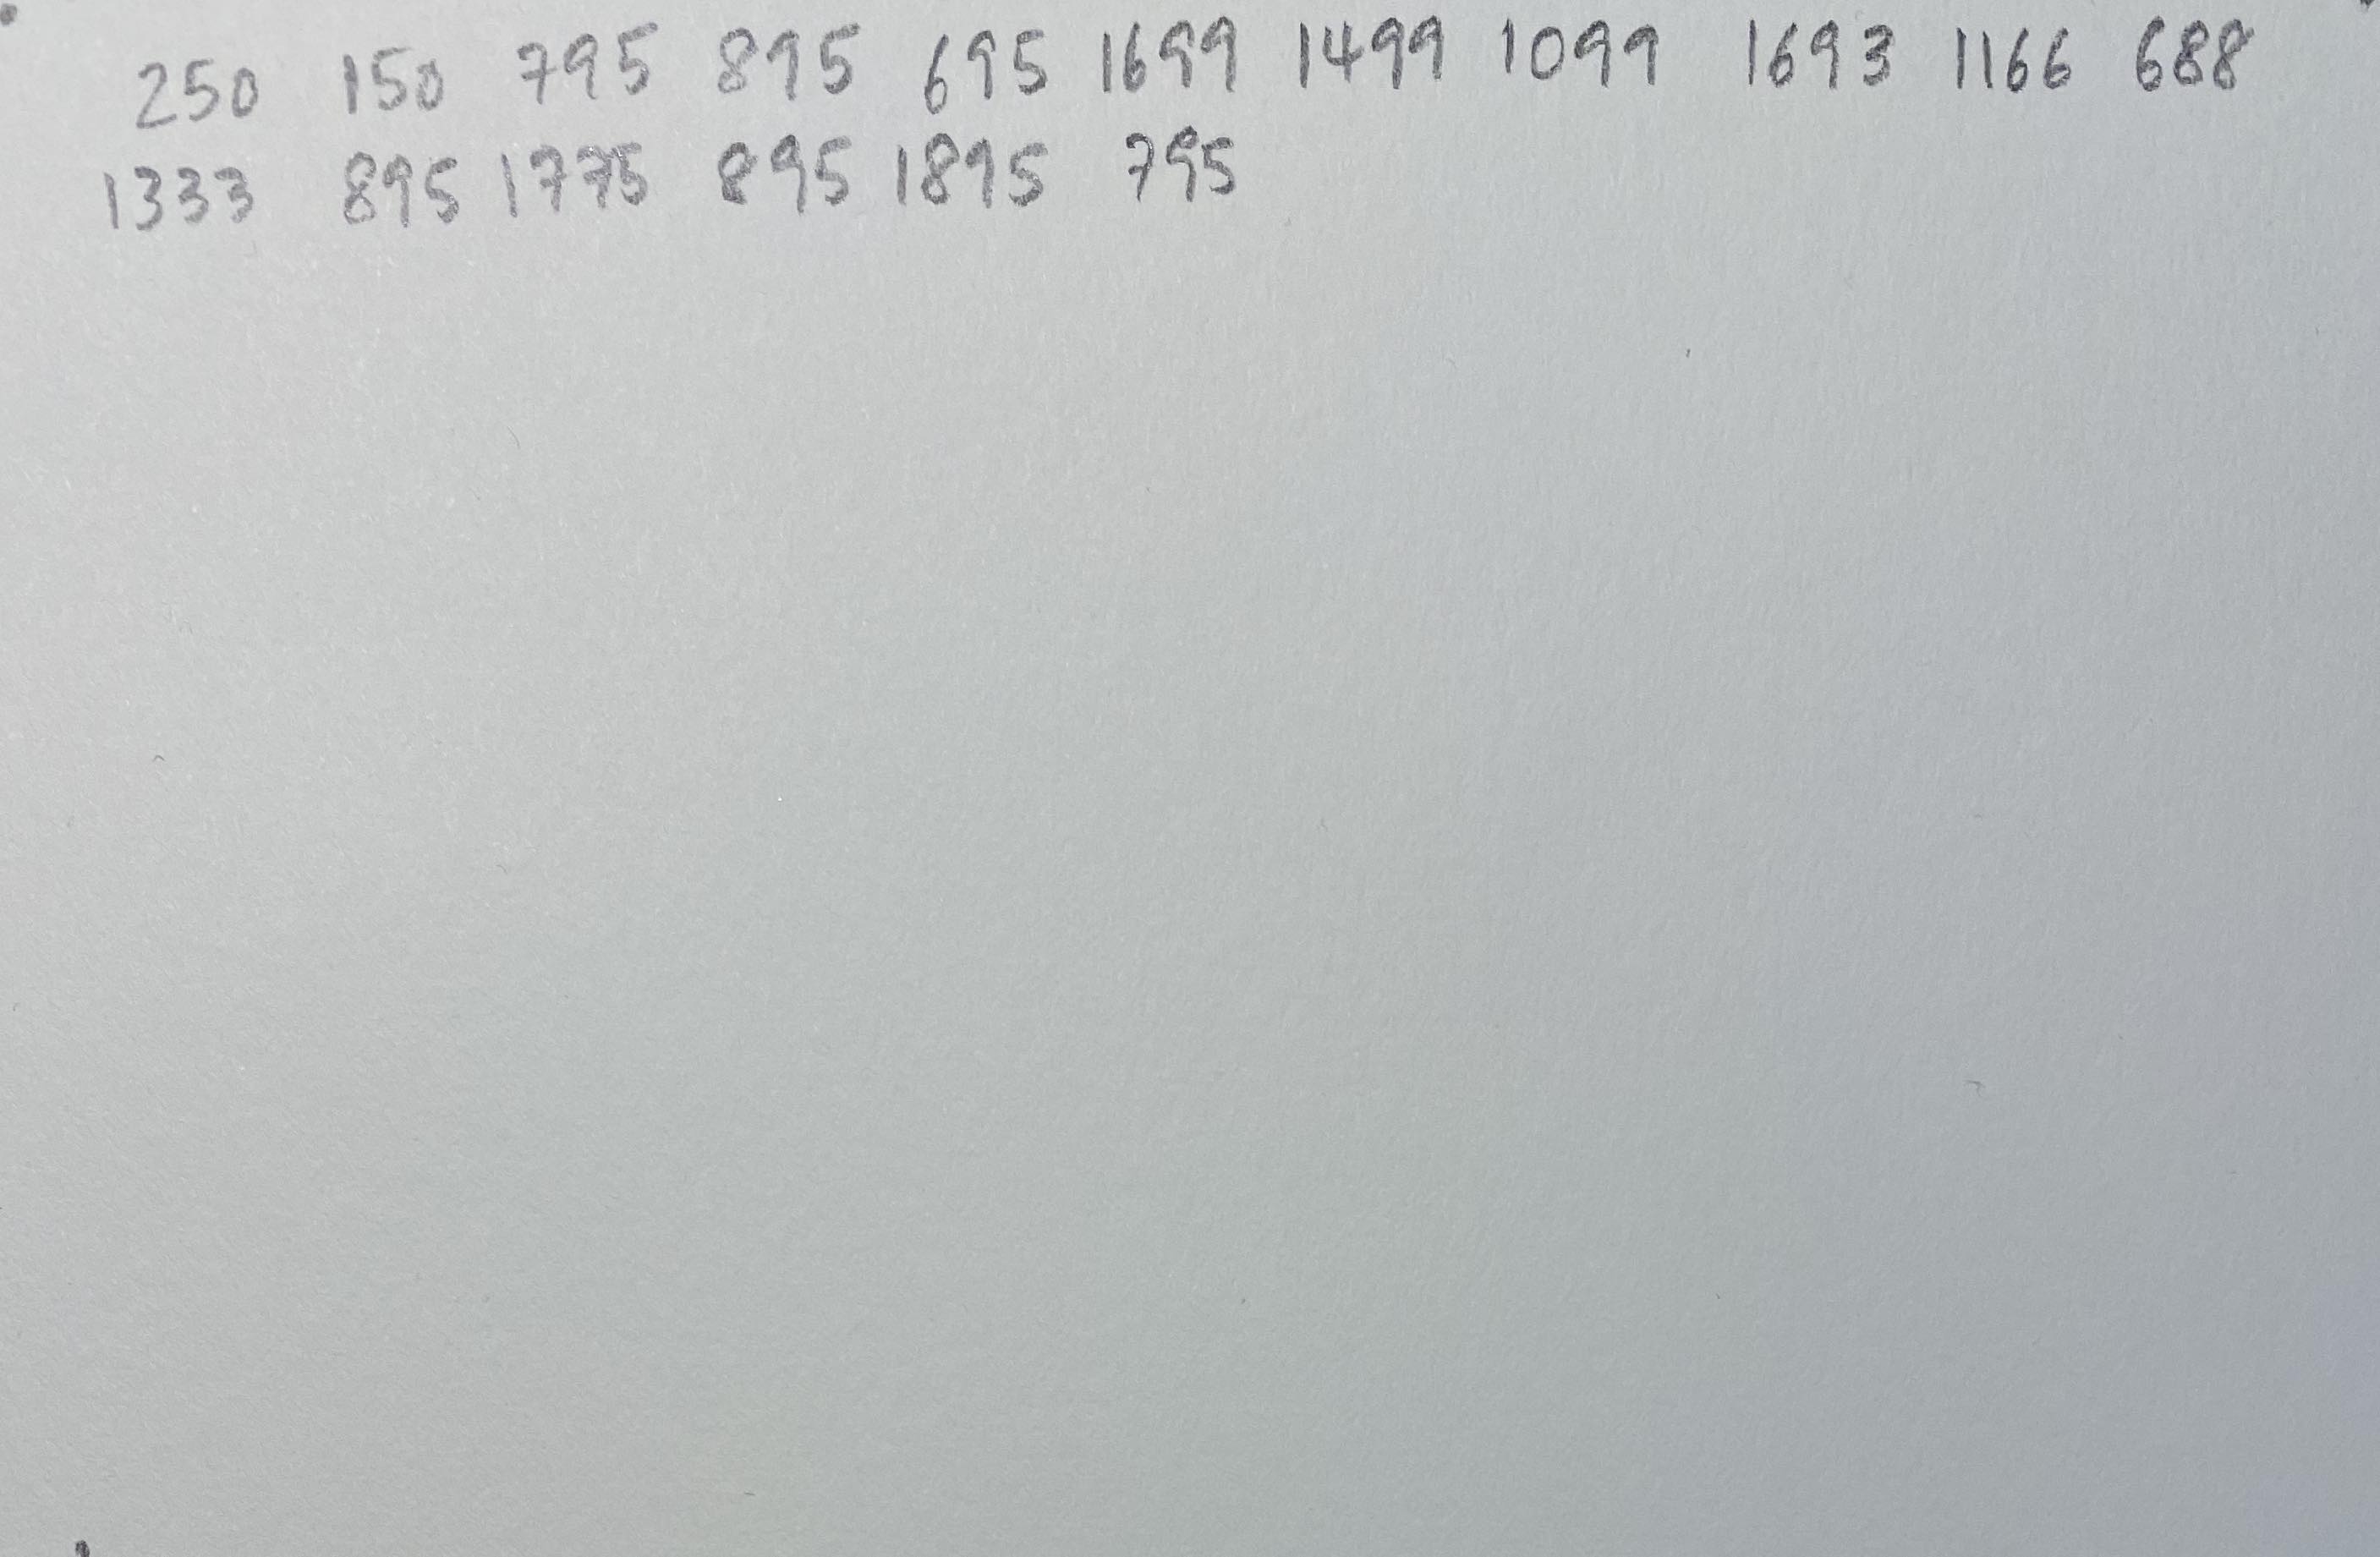 250 150 795 895 695 1699 1499 1099 1693 1166 688
1333 895 1775 895 1895 795